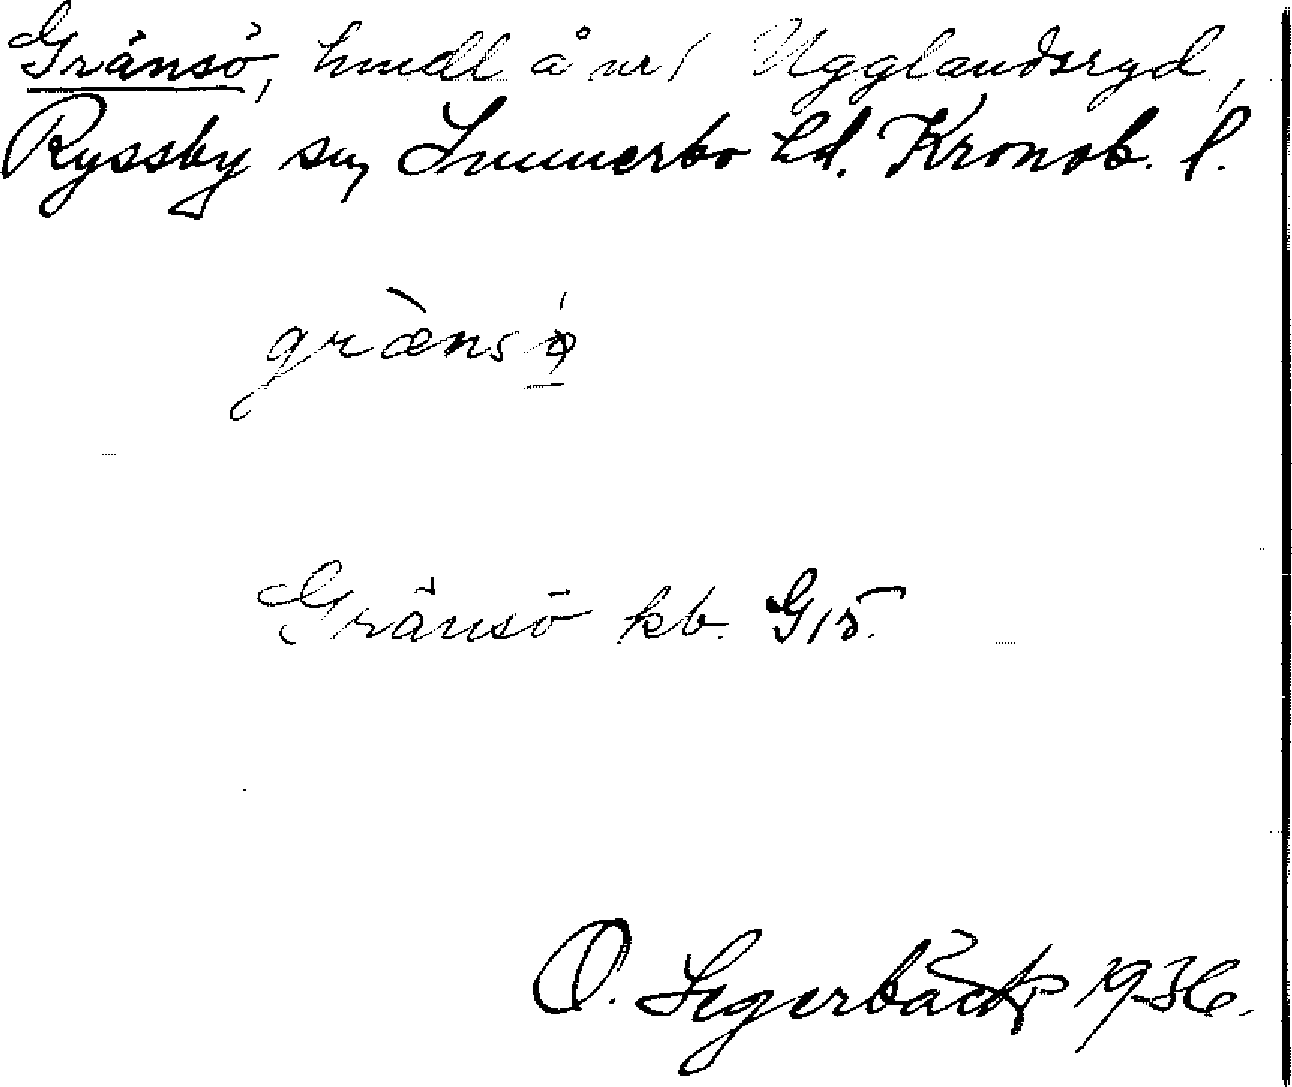 Gränsö, hmdl å nr 1 Ugglandsryd,
Ryssby sn, Sunnerbo hd. Kronob. l.
grænsø
Gränsö kb. G15.
O. Segerbäck 1936.